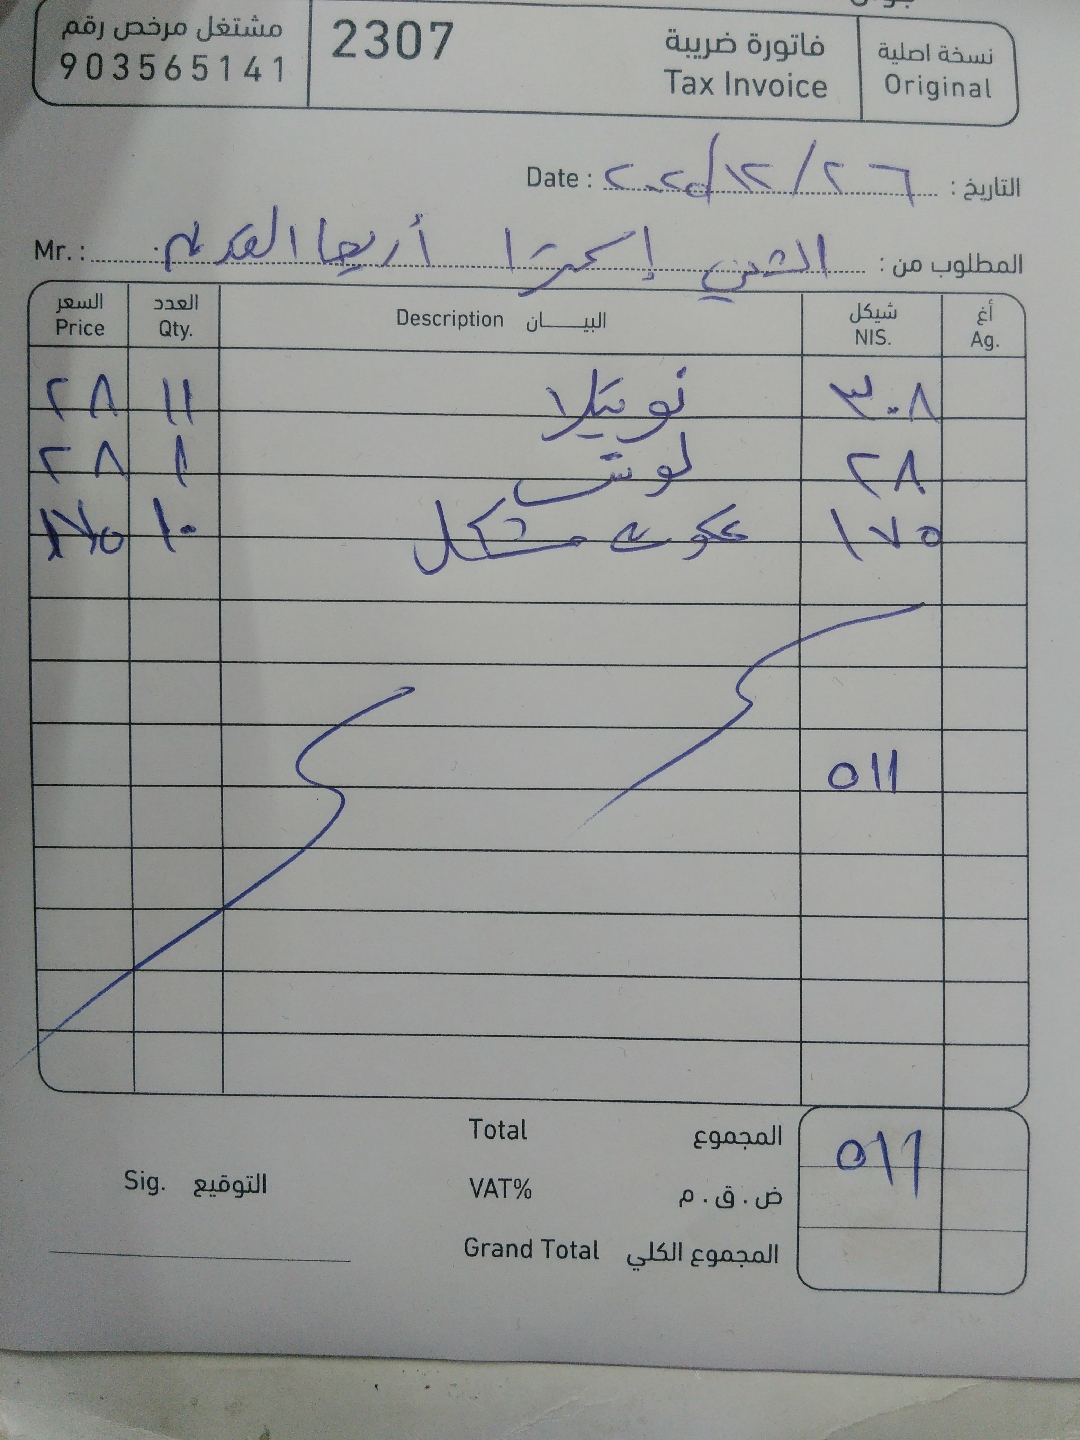 مشتغل مرخص رقم
903565141
2307
فاتورة ضريبة
Tax Invoice
نسخة اصلية
Original
Date : ٢٠٢٥/١٢/٢٦ التاريخ :
Mr. : الشني إكسترا أريحا القديم المطلوب من :
السعر العدد البيان شيكل أغ
Price Qty. Description NIS. Ag.
٢٨ ١١ نوتيلا ٣٠٨
٢٨ ١ لوتس ٢٨
١٧٥ ١٠ مشكل ١٧٥
٥١١
Total المجموع ٥١١
Sig. التوقيع
VAT% ض.ق.م
Grand Total المجموع الكلي